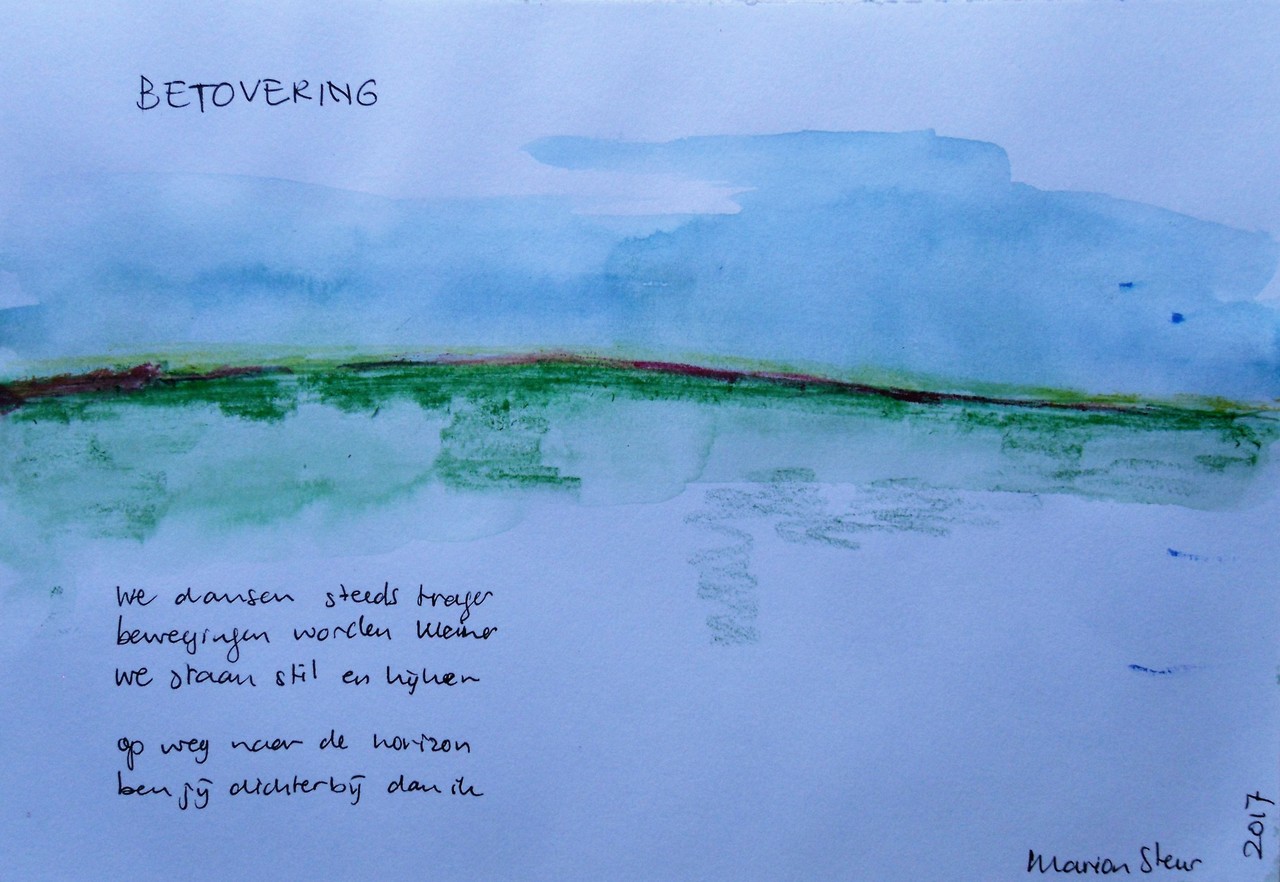 BETOVERING
we dansen steeds trager
bewegingen worden kleiner
we staan stil en kijken
op weg naar de horizon
ben jij dichterbij dan ik
Marion Steur
2017